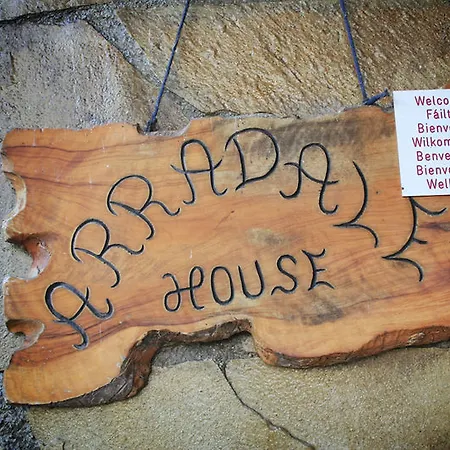 ARRADALE
HOUSE
Welco
Fáilt
Bienve
Wilkom
Benve
Bienve